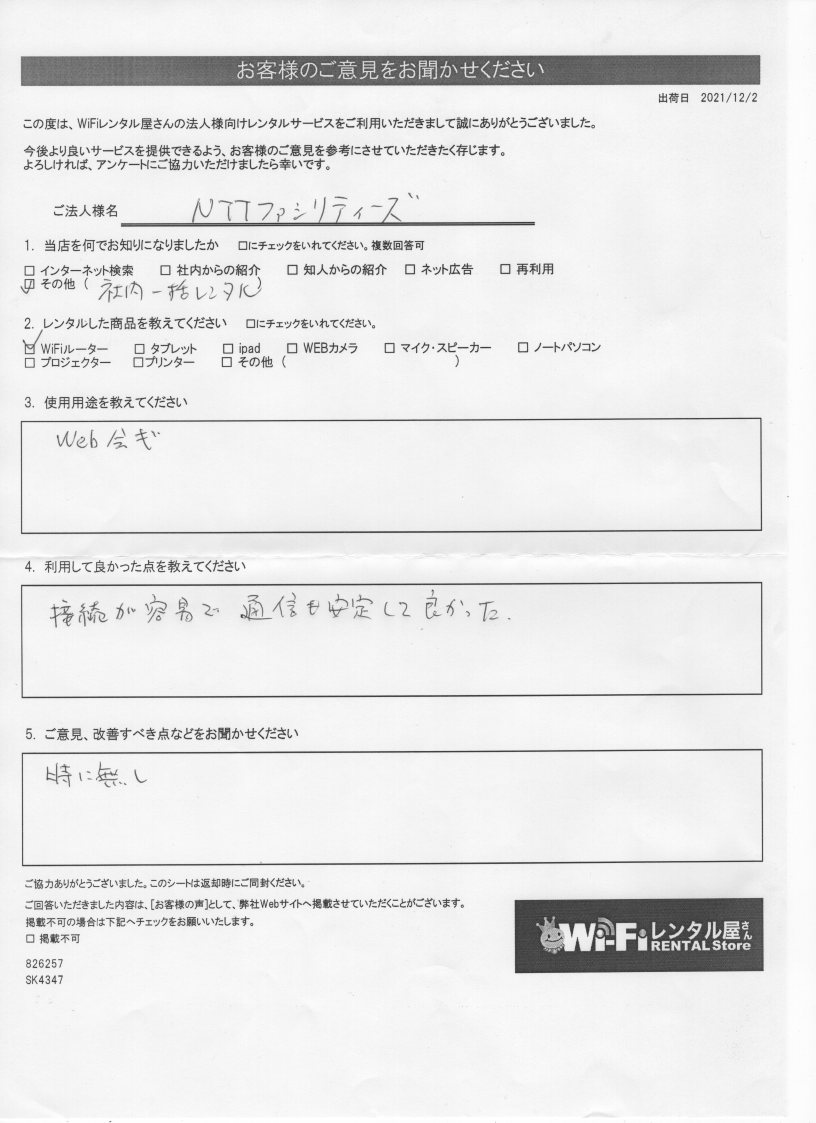 お客様のご意見をお聞かせください
出荷日 2021/12/2
この度は、WiFiレンタル屋さんの法人様向けレンタルサービスをご利用いただきまして誠にありがとうございました。
今後より良いサービスを提供できるよう、お客様のご意見を参考にさせていただきたく存じます。
よろしければ、アンケートにご協力いただけましたら幸いです。
ご法人様名 NTTファシリティーズ
1. 当店を何でお知りになりましたか □にチェックをいれてください。複数回答可
□ インターネット検索 □ 社内からの紹介 □ 知人からの紹介 □ ネット広告 □ 再利用
☑ その他 ( 社内一括レンタル )
2. レンタルした商品を教えてください □にチェックをいれてください。
☑ WiFiルーター □ タブレット □ ipad □ WEBカメラ □ マイク・スピーカー □ ノートパソコン
□ プロジェクター □プリンター □ その他 ( )
3. 使用用途を教えてください
Web会ギ
4. 利用して良かった点を教えてください
接続が容易で通信も安定して良かった.
5. ご意見、改善すべき点などをお聞かせください
時に無し
ご協力ありがとうございました。このシートは返却時にご同封ください。
ご回答いただきました内容は、[お客様の声]として、弊社Webサイトへ掲載させていただくことがございます。
掲載不可の場合は下記へチェックをお願いいたします。
□ 掲載不可
826257
SK4347
Wi-Fiレンタル屋さん
RENTAL Store